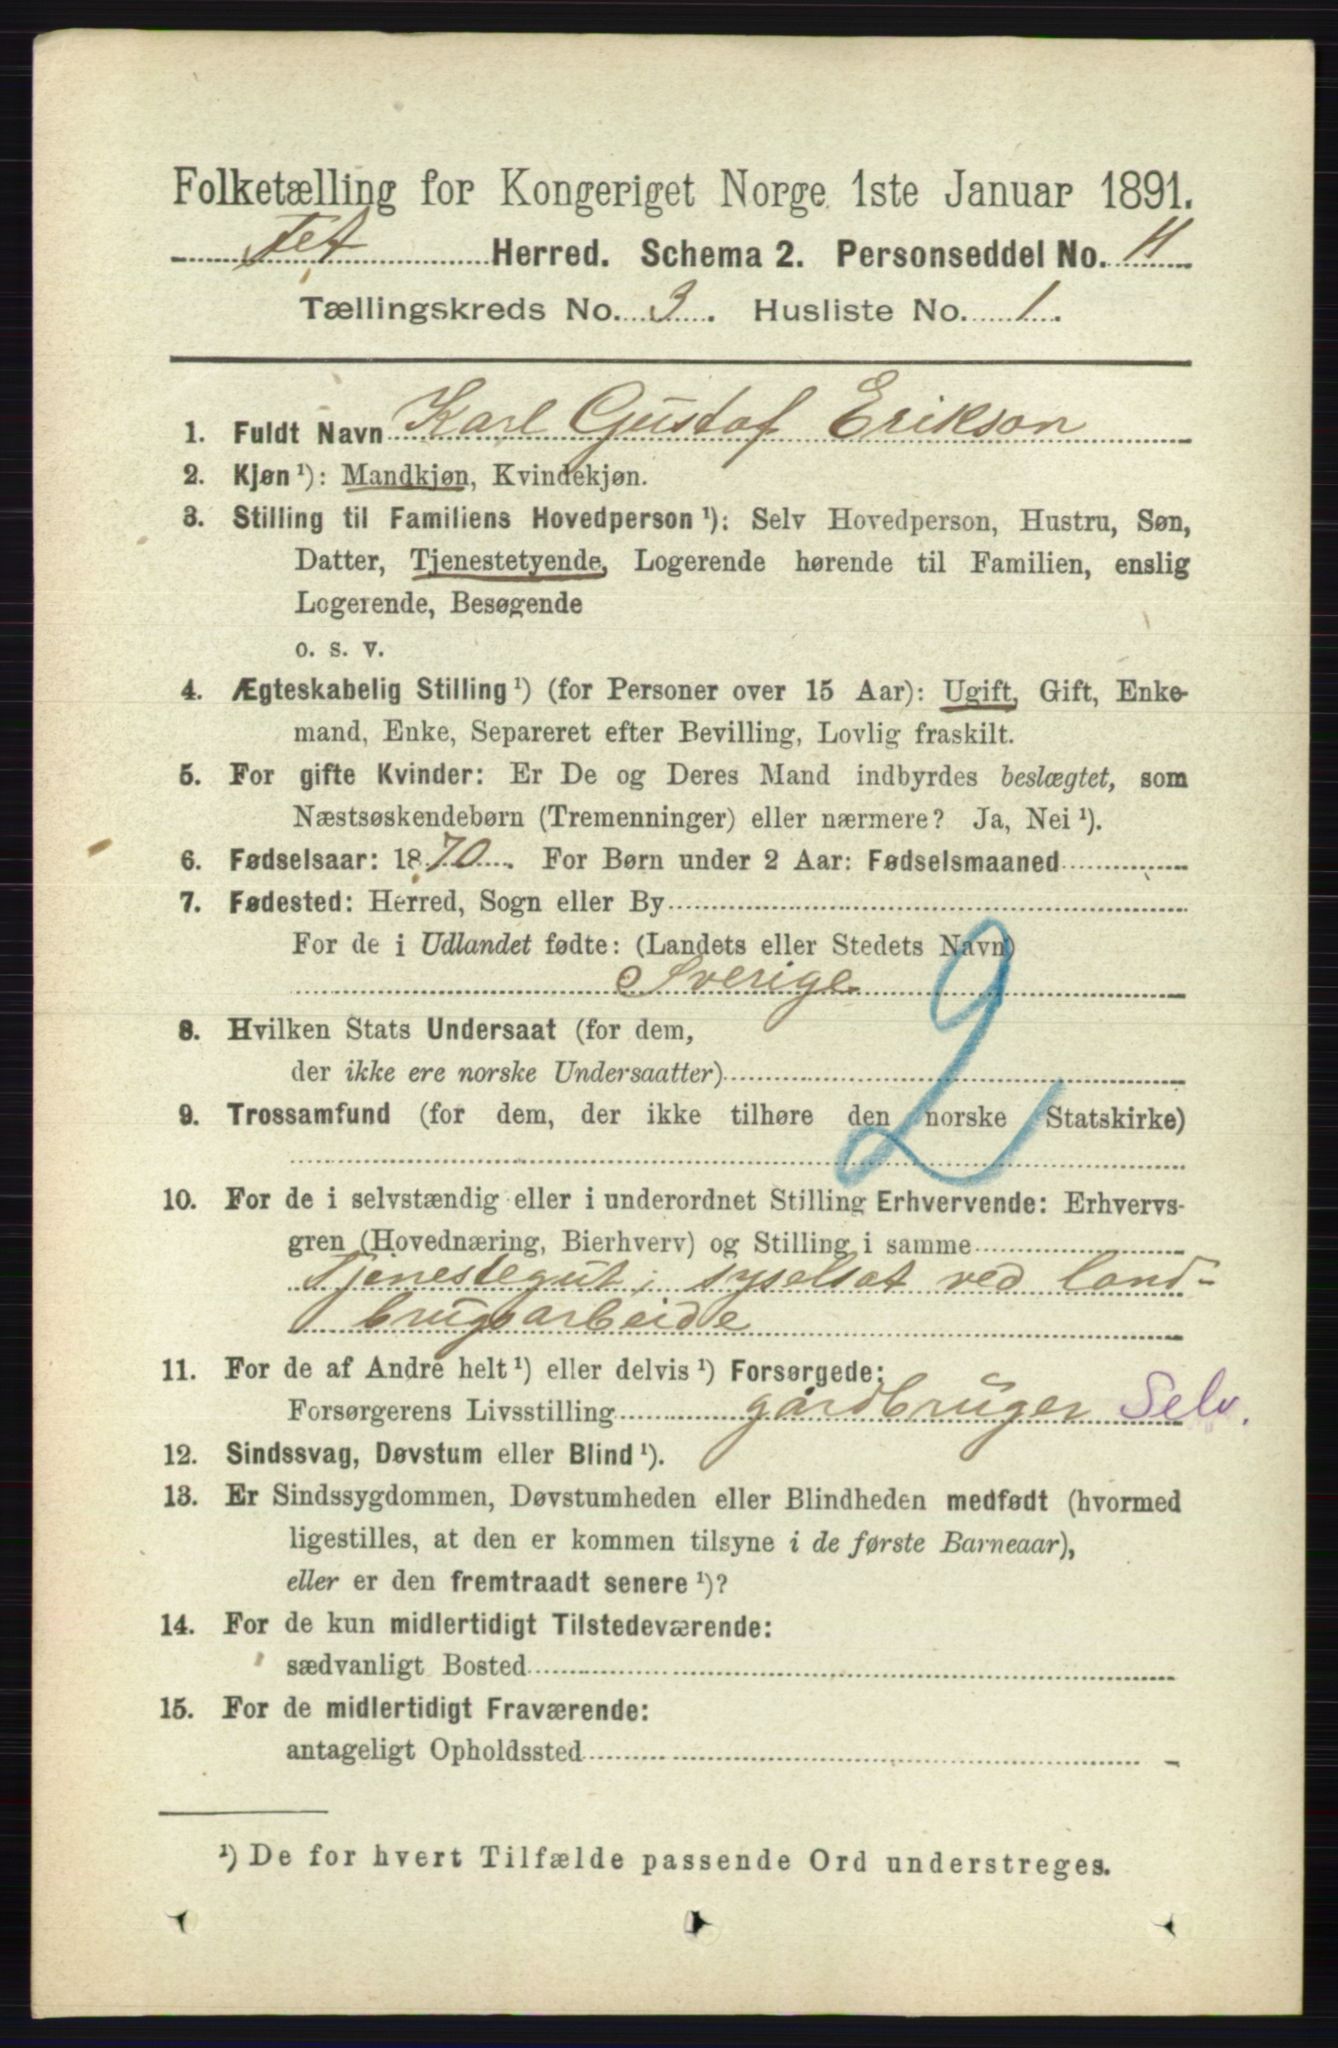 Folketælling for Kongeriget Norge 1ste Januar 1891.
Fet Herred. Schema 2. Personseddel No. 11
Tællingskreds No. 3. Husliste No. 1.
1. Fuldt Navn Karl Gustaf Erikson
2. Kjøn¹): Mandkjøn, Kvindekjøn.
3. Stilling til Familiens Hovedperson¹): Selv Hovedperson, Hustru, Søn,
Datter, Tjenestetyende, Logerende hørende til Familien, enslig
Logerende, Besøgende
o. s. v.
4. Ægteskabelig Stilling¹) (for Personer over 15 Aar): Ugift, Gift, Enke-
mand, Enke, Separeret efter Bevilling, Lovlig fraskilt.
5. For gifte Kvinder: Er De og Deres Mand indbyrdes beslægtet, som
Næstsøskendebørn (Tremenninger) eller nærmere? Ja, Nei¹).
6. Fødselsaar: 1870. For Børn under 2 Aar: Fødselsmaaned
7. Fødested: Herred, Sogn eller By
For de i Udlandet fødte: (Landets eller Stedets Navn)
Sverige
8. Hvilken Stats Undersaat (for dem,
der ikke ere norske Undersaatter)
9. Trossamfund (for dem, der ikke tilhøre den norske Statskirke)
2
10. For de i selvstændig eller i underordnet Stilling Erhvervende: Erhvervs-
gren (Hovednæring, Bierhverv) og Stilling i samme
Tjenestegut, syselsat ved land-
brugsarbeide
11. For de af Andre helt¹) eller delvis¹) Forsørgede:
Forsørgerens Livsstilling gårdbruger Selv.
12. Sindssvag, Døvstum eller Blind¹).
13. Er Sindssygdommen, Døvstumheden eller Blindheden medfødt (hvormed
ligestilles, at den er kommen tilsyne i de første Barneaar),
eller er den fremtraadt senere¹)?
14. For de kun midlertidigt Tilstedeværende:
sædvanligt Bosted
15. For de midlertidigt Fraværende:
antageligt Opholdssted
¹) De for hvert Tilfælde passende Ord understreges.